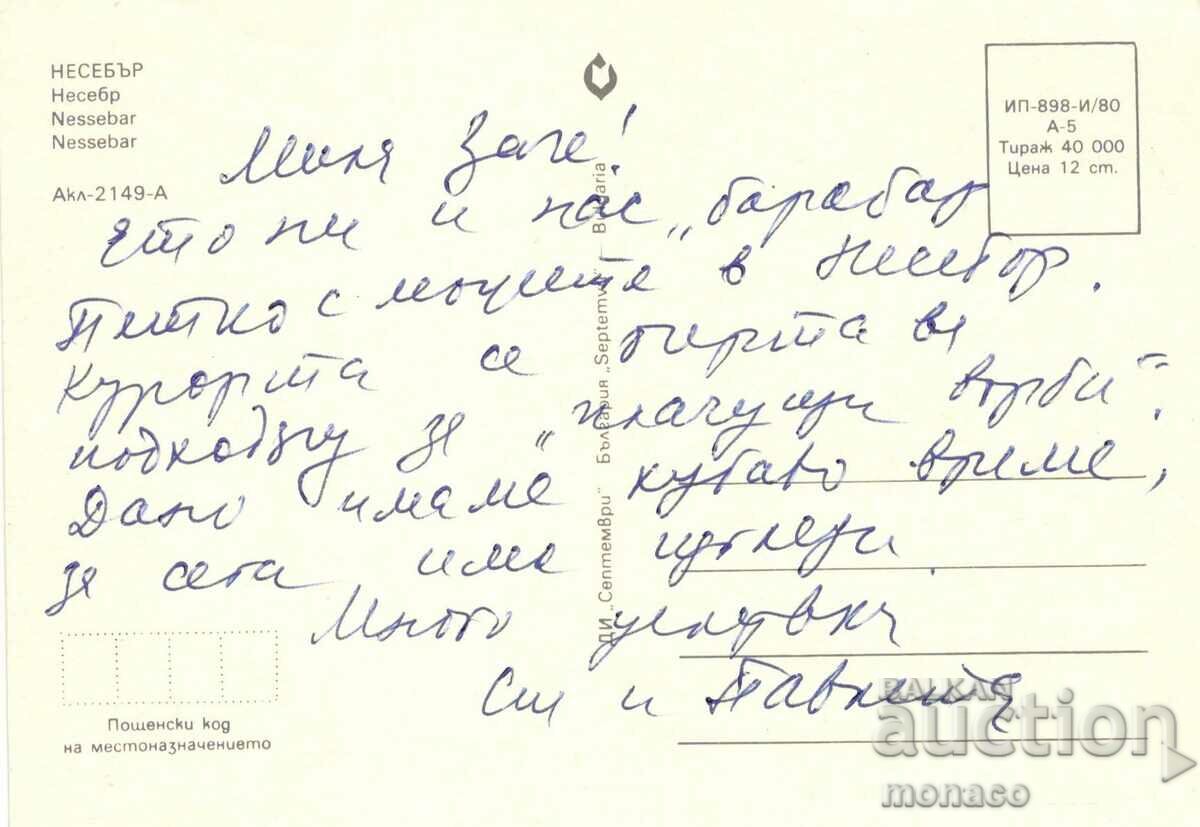 НЕСЕБЪР
Несебр
Nessebar
Nessebar
Акл-2149-А
ИП-898-И/80
А-5
Тираж 40 000
Цена 12 ст.
Мила
Ето ни и нас „барабар
Петко с мъжете в Несебър.
Курортa се
подходящ за „плачущи върби".
Дано имаме хубаво време,
за сега има изгледи.
Много целувки
и Павлета
ДИ „Септември" България „Septemvri" Bulgaria
Пощенски код
на местоназначението
BALKAN
auction
monaco